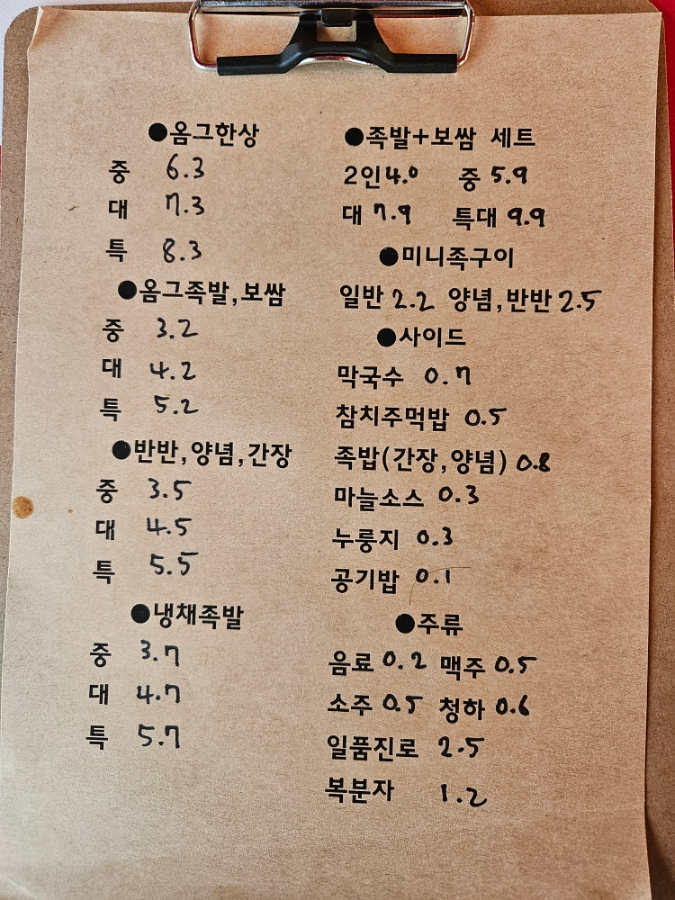 ●옴그한상
중 6.3
대 7.3
특 8.3
●옴그족발,보쌈
중 3.2
대 4.2
특 5.2
●반반,양념,간장
중 3.5
대 4.5
특 5.5
●냉채족발
중 3.7
대 4.7
특 5.7
●족발+보쌈 세트
2인 4.0 중 5.9
대 7.9 특대 9.9
●미니족구이
일반 2.2 양념,반반 2.5
●사이드
막국수 0.7
참치주먹밥 0.5
족밥(간장,양념) 0.8
마늘소스 0.3
누룽지 0.3
공기밥 0.1
●주류
음료 0.2 맥주 0.5
소주 0.5 청하 0.6
일품진로 2.5
복분자 1.2